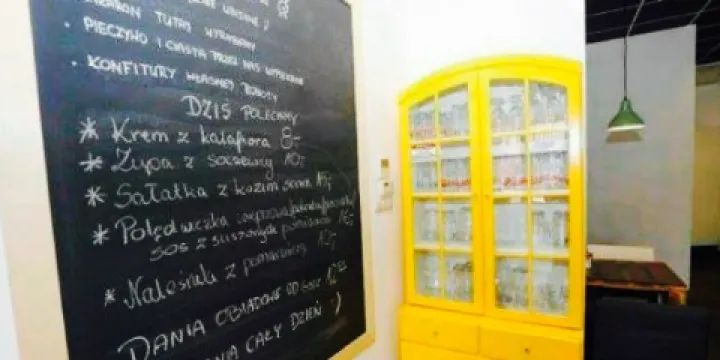 MAKARON TUTAJ WYRABIANY
• PIECZYWO I CIASTA PRZEZ NAS WYPIEKANE
• KONFITURY WŁASNEJ ROBOTY
DZIŚ POLECAMY
* Krem z kalafiora 8-
* Zupa z soczewicy 10-
* Sałatka z kozim serem
* Polędwiczka wieprzowa
sos z suszonych pomidorów 16-
* Naleśniki z pomarańczą 12-
DANIA OBIADOWE OD GODZ 12
CAŁY DZIEŃ :)